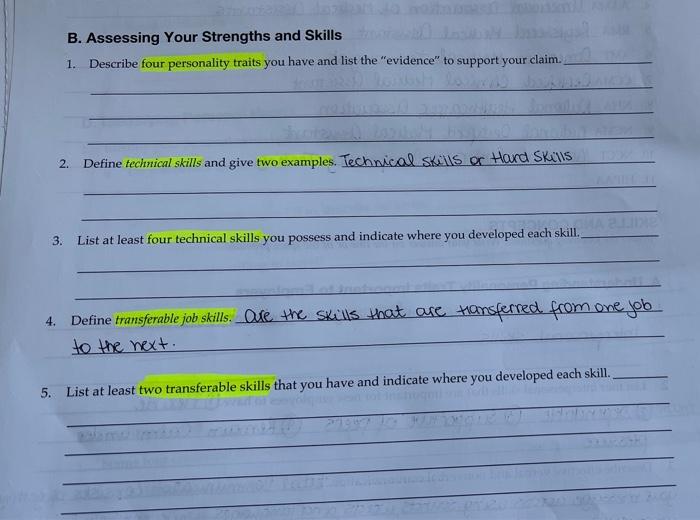 B. Assessing Your Strengths and Skills
1. Describe four personality traits you have and list the "evidence" to support your claim.
2. Define technical skills and give two examples. Technical skills or Hard Skills
3. List at least four technical skills you possess and indicate where you developed each skill.
4. Define transferable job skills. Are the skills that are transferred from one job
to the next.
5. List at least two transferable skills that you have and indicate where you developed each skill.